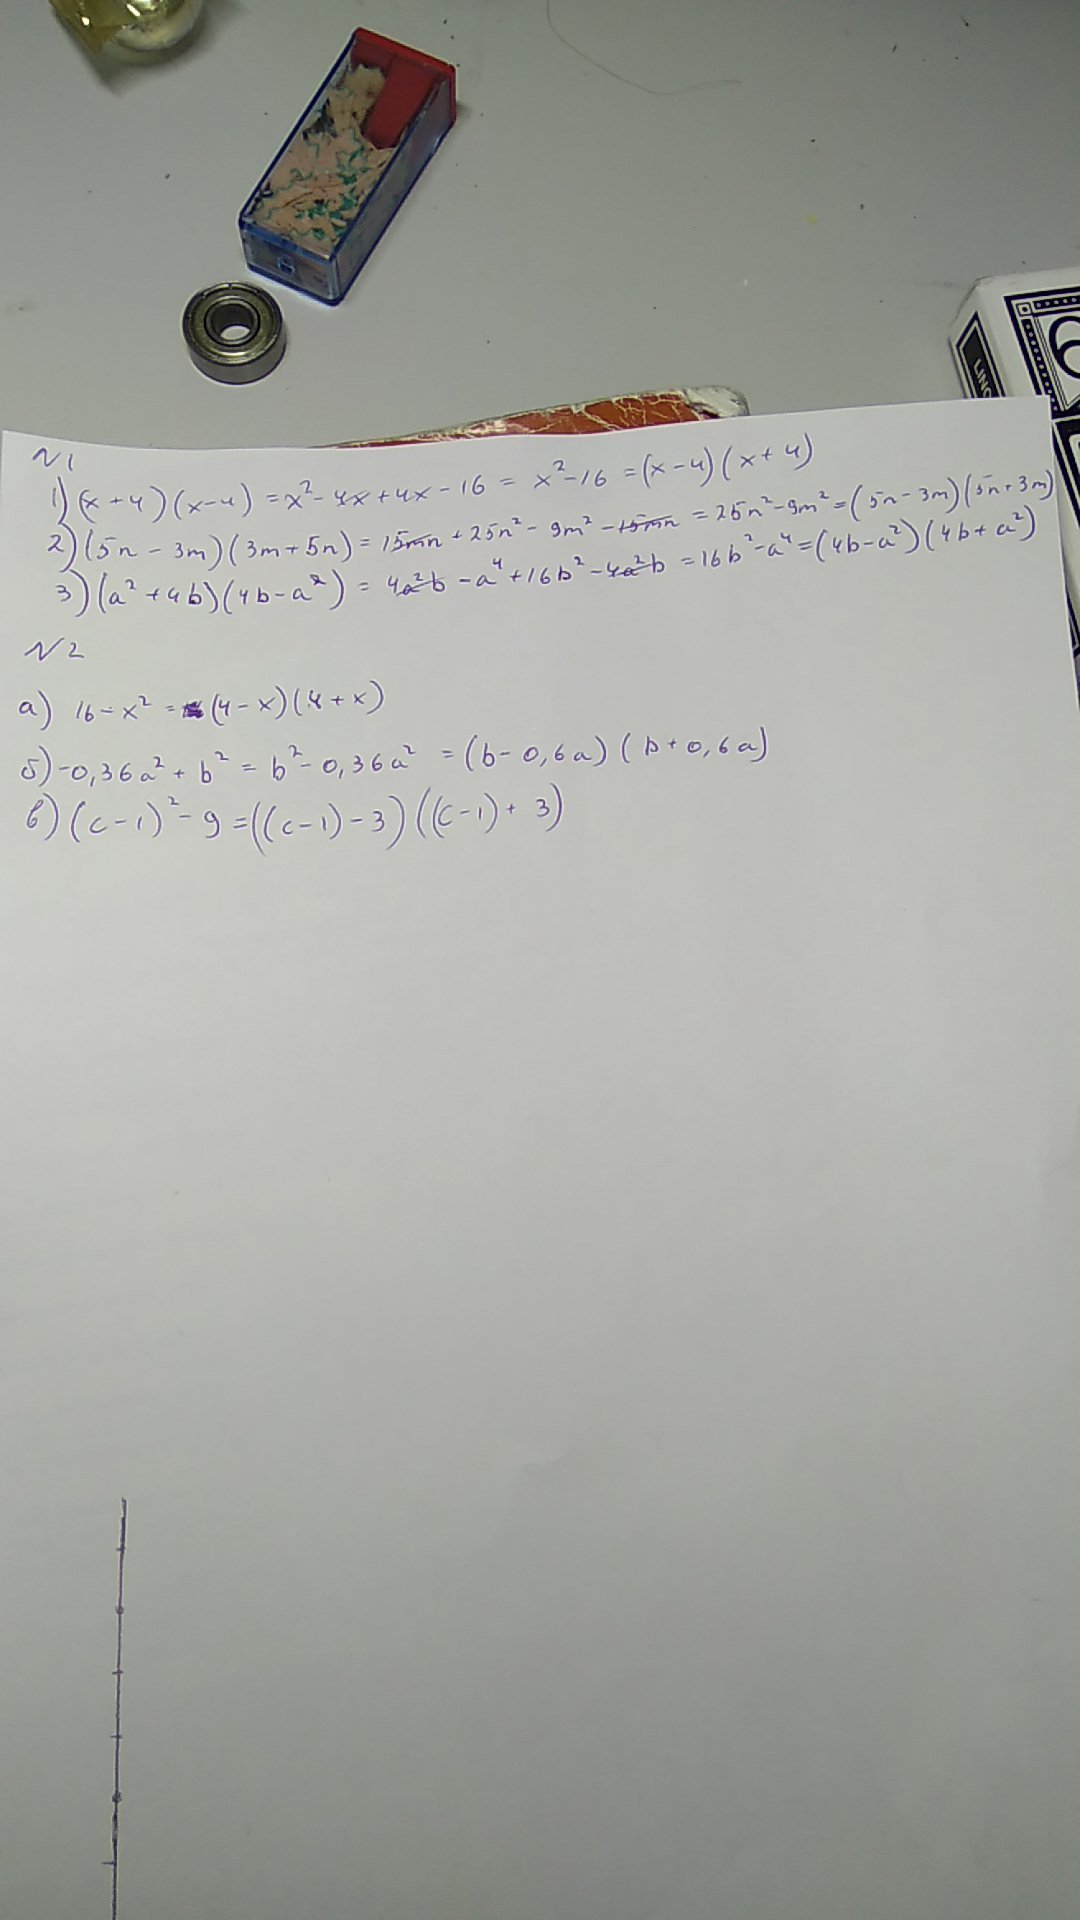 LING
6
N1
1) (x + 4)(x - 4) = x² - 4x + 4x - 16 = x² - 16 = (x - 4)(x + 4)
2) (5n - 3m)(3m + 5n) = 15mn + 25n² - 9m² - 15mn = 25n² - 9m² = (5n - 3m)(5n + 3m)
3) (a² + 4b)(4b - a²) = 4a²b - a⁴ + 16b² - 4a²b = 16b² - a⁴ = (4b - a²)(4b + a²)
N2
а) 16 - x² = (4 - x)(4 + x)
б) -0,36a² + b² = b² - 0,36a² = (b - 0,6a)(b + 0,6a)
в) (c - 1)² - 9 = ((c - 1) - 3)((c - 1) + 3)